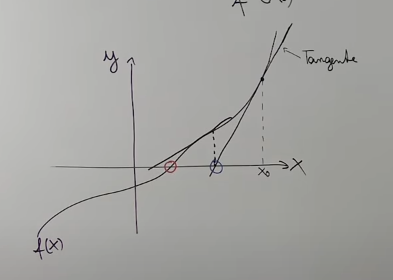 y
Tangente
x
x₀
f(x)